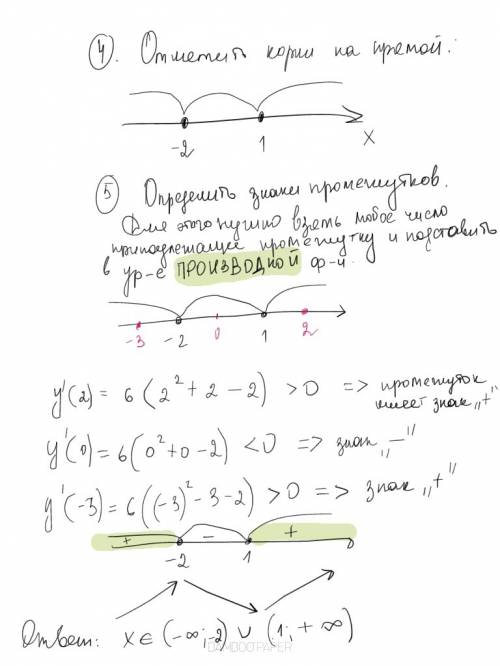 ④. Отметить корни на прямой:
-2 1 x
⑤ Определить знаки промежутков.
Для этого нужно взять любое число
принадлежащее промежутку и подставить
в ур-е ПРОИЗВОДНОЙ ф-и.
-3 -2 0 1 2
y'(2) = 6 (2² + 2 - 2) > 0 => промежуток
имеет знак „+"
y'(0) = 6 (0² + 0 - 2) < 0 => знак „-"
y'(-3) = 6 ((-3)² - 3 - 2) > 0 => знак „+"
+ - +
-2 1
Ответ: x ∈ (-∞; -2) ∪ (1; +∞)
BAMBOOPAPER